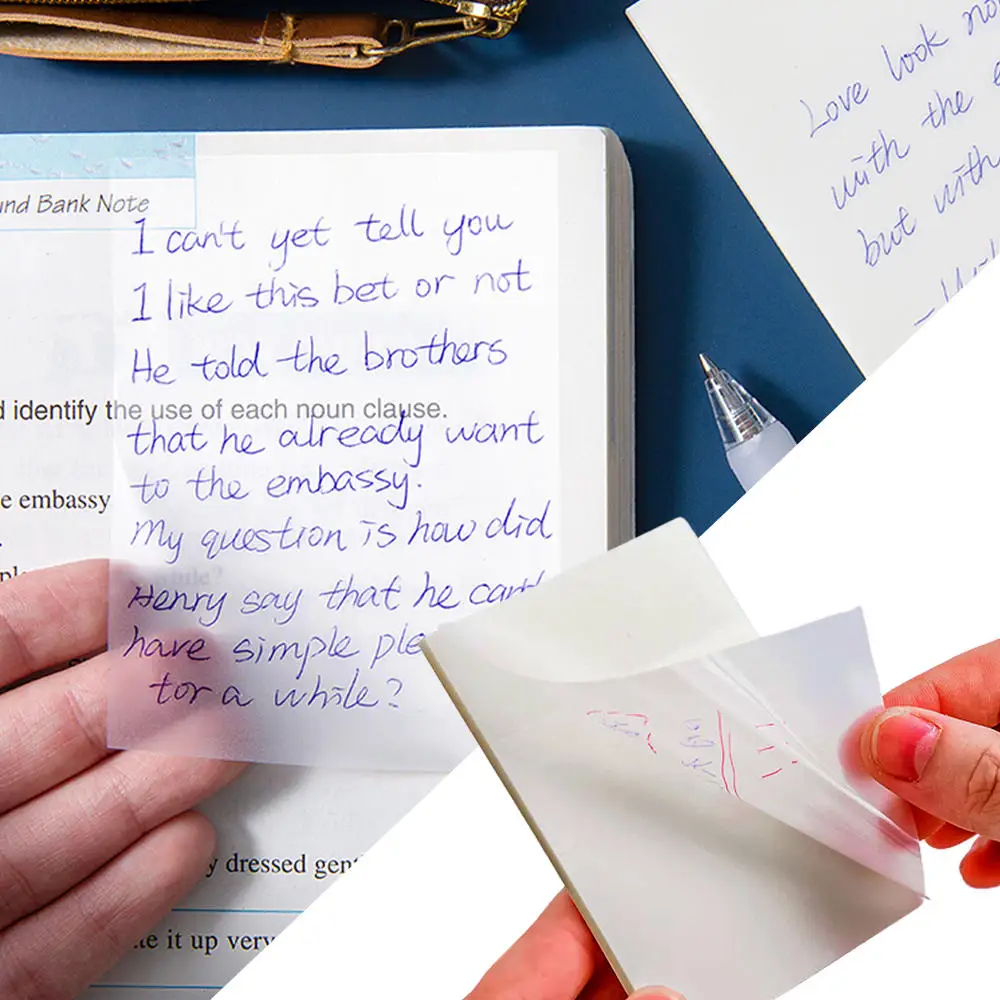 und Bank Note
I can't yet tell you
I like this bet or not
He told the brothers
d identify the use of each noun clause.
that he already want
e embassy
to the embassy.
My question is how did
Henry say that he can't
have simple ple
for a while?
y dressed gent
te it up very
Love look no
with the e
but with